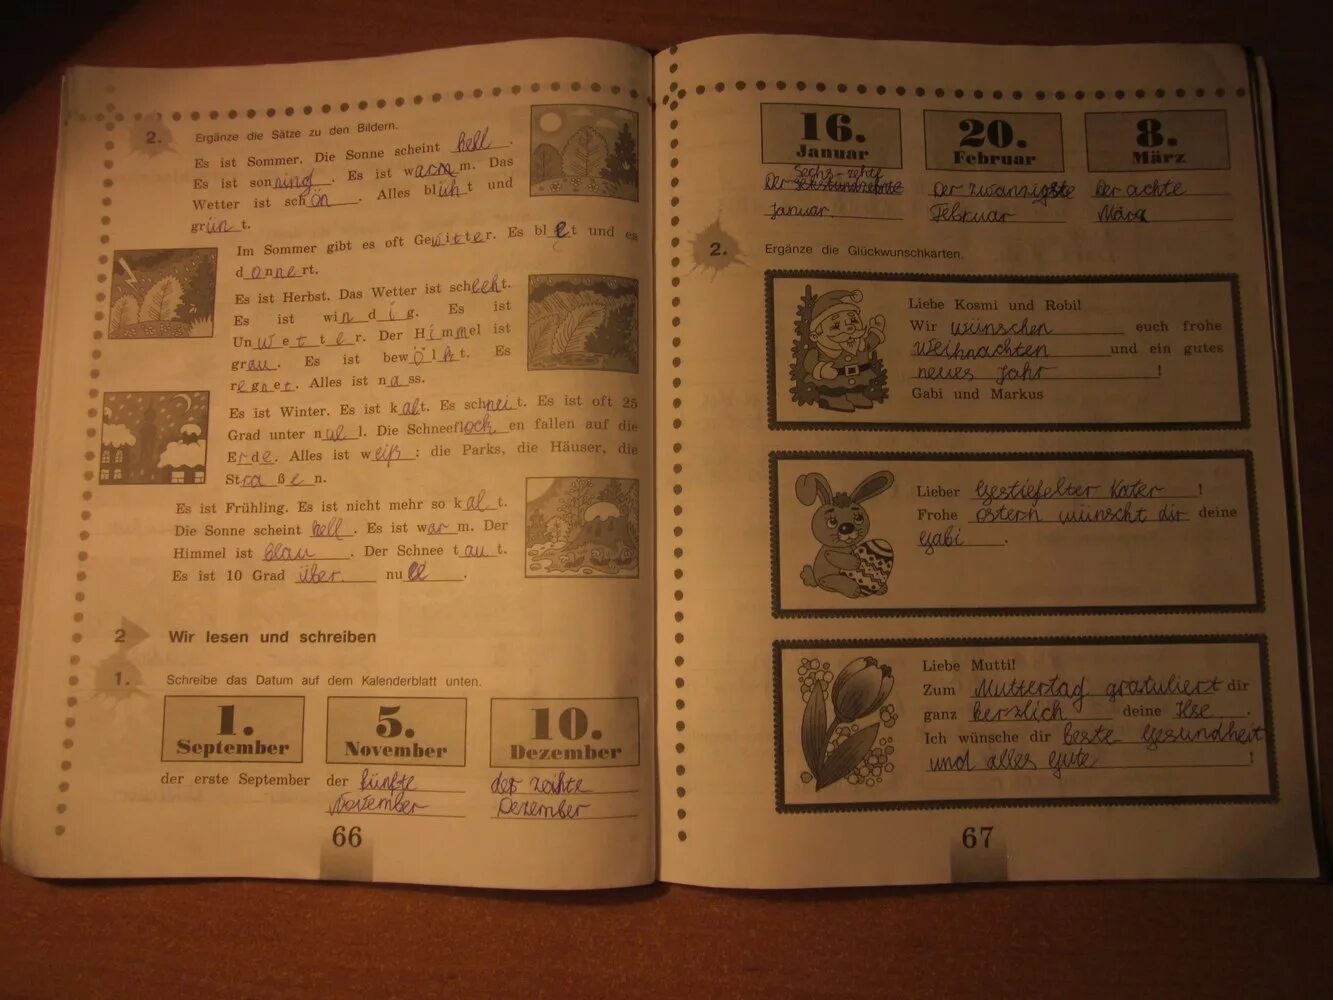 2. Ergänze die Sätze zu den Bildern.
Es ist Sommer. Die Sonne scheint hell.
Es ist sonning. Es ist warm m. Das
Wetter ist schön. Alles blüht und
grünt.
Im Sommer gibt es oft Gewitter. Es blet und es
donnert.
Es ist Herbst. Das Wetter ist schleht.
Es ist windig. Es ist
Unwetter. Der Himmel ist
grau. Es ist bewölkt. Es
regnet. Alles ist nass.
Es ist Winter. Es ist kalt. Es schneit. Es ist oft 25
Grad unter null. Die Schneeflocken fallen auf die
Erde. Alles ist weiß: die Parks, die Häuser, die
Straßen.
Es ist Frühling. Es ist nicht mehr so kalt.
Die Sonne scheint hell. Es ist warm. Der
Himmel ist blau. Der Schnee taut.
Es ist 10 Grad über null.
2 Wir lesen und schreiben
1. Schreibe das Datum auf dem Kalenderblatt unten.
1. September
5. November
10. Dezember
der erste September
der fünfte
November
der zehte
Dezember
66
16. Januar
20. Februar
8. März
Sechs-zehte
Der
Januar.
Der zwanzigste
Februar
Der achte
März
2. Ergänze die Glückwunschkarten.
Liebe Kosmi und Robi!
Wir wünschen euch frohe
Weihnachten und ein gutes
neues Jahr!
Gabi und Markus
Lieber Gestiefelter Kater!
Frohe Ostern wünscht dir deine
Gabi.
Liebe Mutti!
Zum Muttertag gratuliert dir
ganz herzlich deine Ilse.
Ich wünsche dir beste Gesundheit
und alles Gute!
67